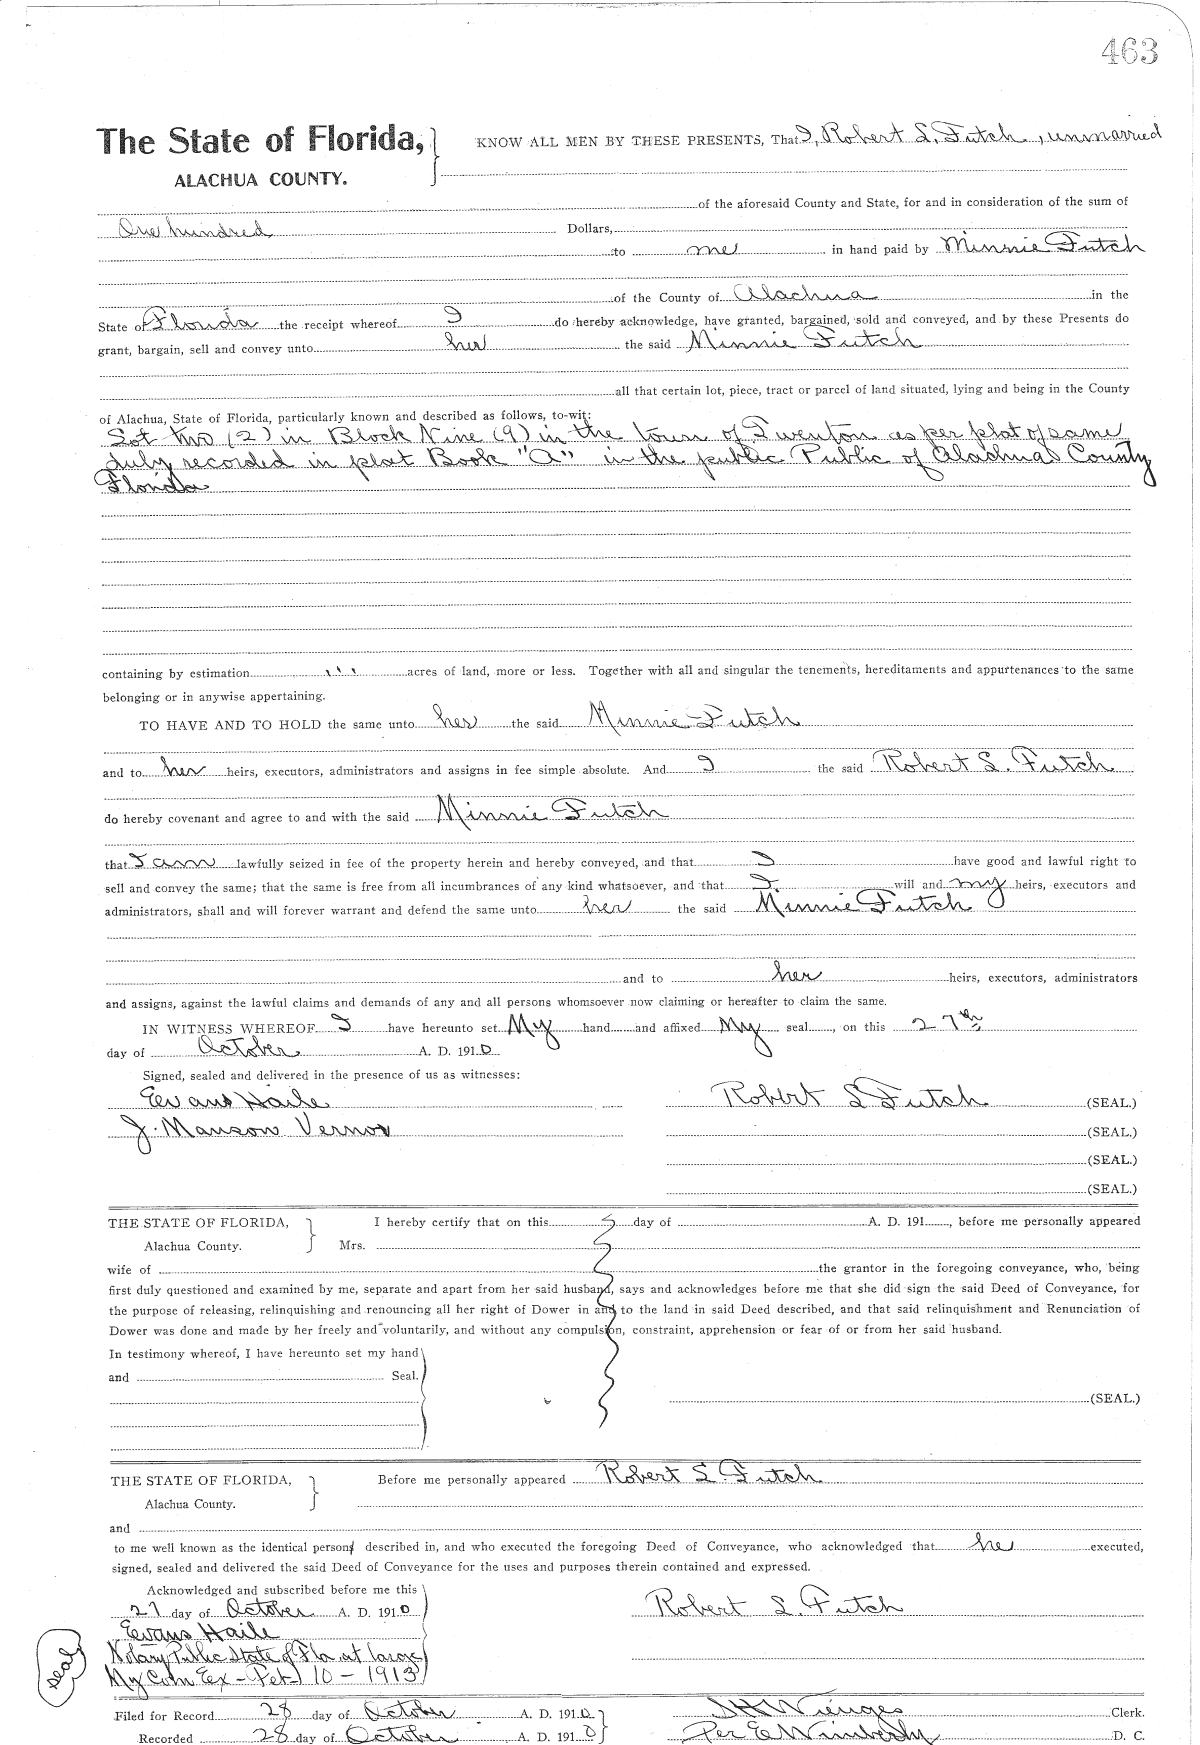 463
The State of Florida, KNOW ALL MEN BY THESE PRESENTS, That I, Robert L. Futch, unmarried
ALACHUA COUNTY.
of the aforesaid County and State, for and in consideration of the sum of
One hundred Dollars,
to me in hand paid by Minnie Futch
of the County of Alachua in the
State of Florida the receipt whereof I do hereby acknowledge, have granted, bargained, sold and conveyed, and by these Presents do
grant, bargain, sell and convey unto her the said Minnie Futch
all that certain lot, piece, tract or parcel of land situated, lying and being in the County
of Alachua, State of Florida, particularly known and described as follows, to-wit:
Lot two (2) in Block Nine (9) in the town of as per plat of same
duly recorded in plat Book "A" in the public Public of Alachua County
Florida
containing by estimation ''' acres of land, more or less. Together with all and singular the tenements, hereditaments and appurtenances to the same
belonging or in anywise appertaining.
TO HAVE AND TO HOLD the same unto her the said Minnie Futch
and to her heirs, executors, administrators and assigns in fee simple absolute. And I the said Robert L. Futch
do hereby covenant and agree to and with the said Minnie Futch
that I am lawfully seized in fee of the property herein and hereby conveyed, and that I have good and lawful right to
sell and convey the same; that the same is free from all incumbrances of any kind whatsoever, and that I will and my heirs, executors and
administrators, shall and will forever warrant and defend the same unto her the said Minnie Futch
and to her heirs, executors, administrators
and assigns, against the lawful claims and demands of any and all persons whomsoever now claiming or hereafter to claim the same.
IN WITNESS WHEREOF I have hereunto set My hand and affixed My seal, on this 27th
day of October A. D. 1910
Signed, sealed and delivered in the presence of us as witnesses:
Evans Haile Robert L Futch (SEAL.)
J. Manson Vernon (SEAL.)
(SEAL.)
(SEAL.)
THE STATE OF FLORIDA, I hereby certify that on this day of A. D. 191 , before me personally appeared
Alachua County. Mrs.
wife of the grantor in the foregoing conveyance, who, being
first duly questioned and examined by me, separate and apart from her said husband, says and acknowledges before me that she did sign the said Deed of Conveyance, for
the purpose of releasing, relinquishing and renouncing all her right of Dower in and to the land in said Deed described, and that said relinquishment and Renunciation of
Dower was done and made by her freely and voluntarily, and without any compulsion, constraint, apprehension or fear of or from her said husband.
In testimony whereof, I have hereunto set my hand
and Seal.
(SEAL.)
THE STATE OF FLORIDA, Before me personally appeared Robert L Futch
Alachua County.
and
to me well known as the identical person described in, and who executed the foregoing Deed of Conveyance, who acknowledged that he executed,
signed, sealed and delivered the said Deed of Conveyance for the uses and purposes therein contained and expressed.
Acknowledged and subscribed before me this
27 day of October A. D. 1910 Robert L. Futch
Evans Haile
Notary Public State of Fla at large
seal My Com Ex - Feb 10 - 1913
Filed for Record 28 day of October A. D. 1910 S H Wienges Clerk.
Recorded 28 day of October A. D. 1910 Per E Wimberly D. C.